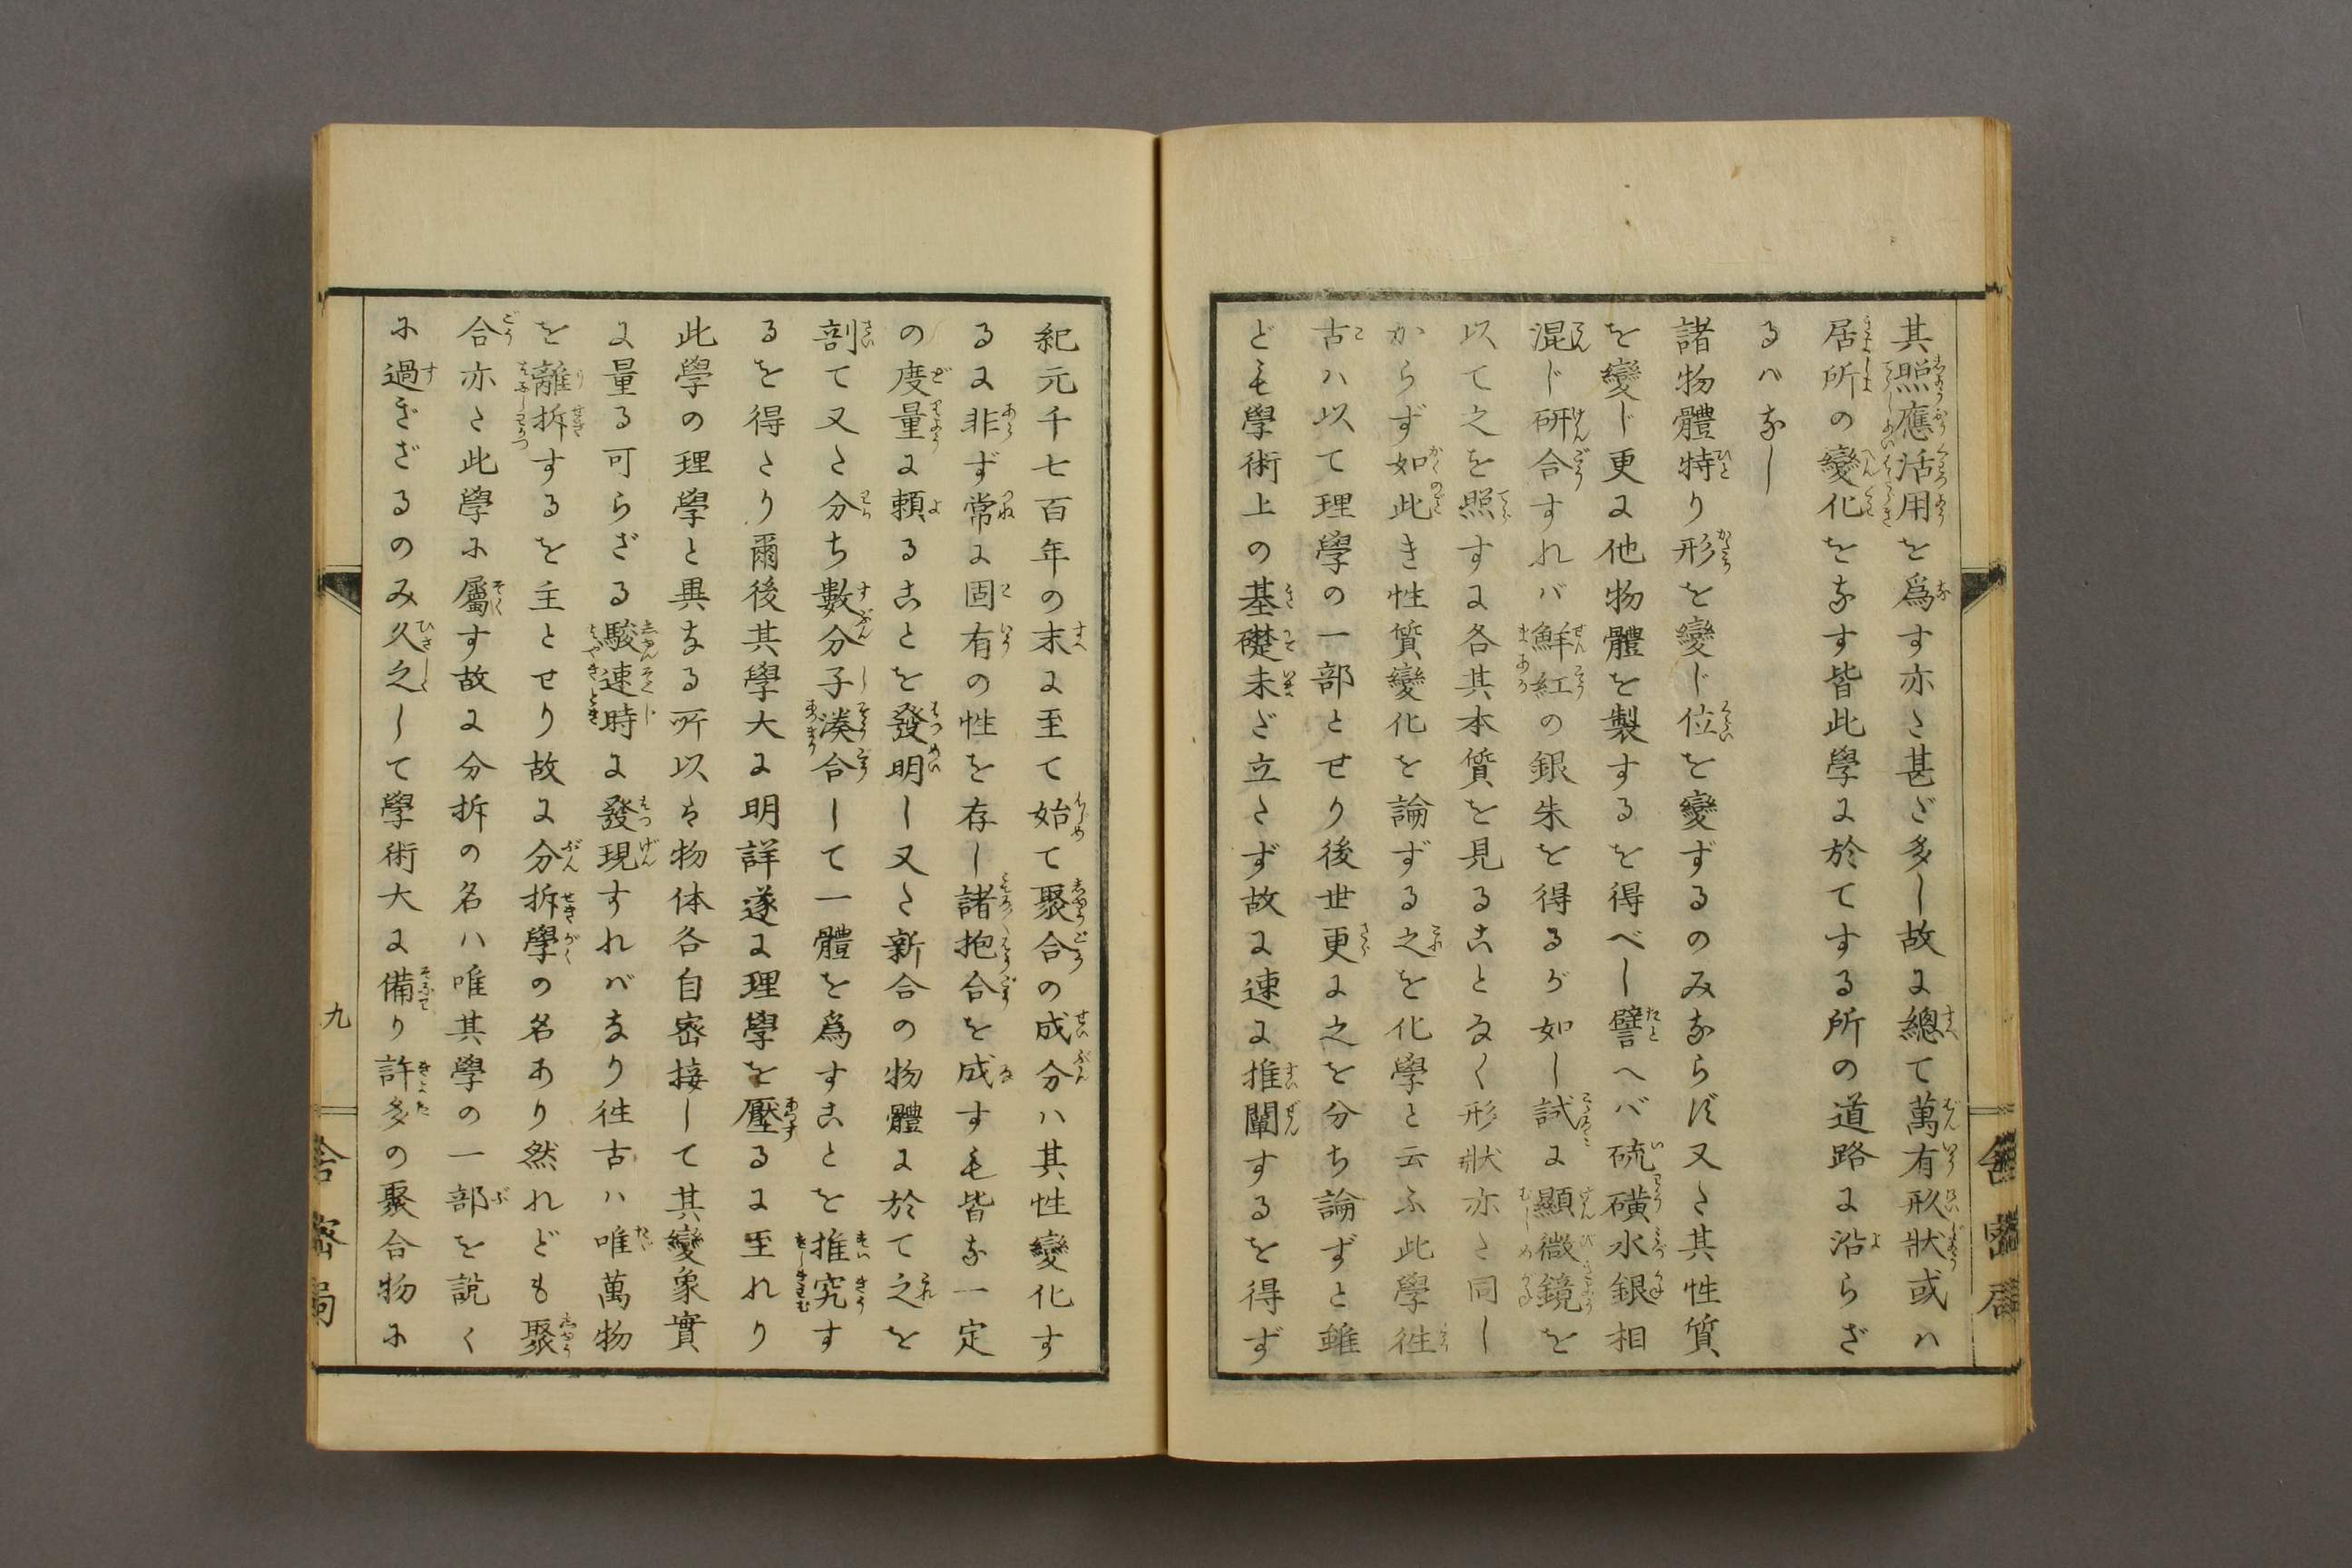 其照應活用を爲す亦た甚だ多し故に總て萬有形狀或ハ
居所の變化をなす皆此學に於てする所の道路に沿らざ
るべなし
諸物體特り形を變じ位を變ずるのみならず又た其性質
を變じ更に他物體を製するを得べし譬へバ硫磺水銀相
混じ研合すれバ鮮紅の銀朱を得るが如し試に顯微鏡を
以て之を照すに各其本質を見ることなく形狀亦た同し
からず如此き性質變化を論ずる之を化學と云ふ此學徃
古ハ以て理學の一部とせり後世更に之を分ち論ずと雖
ども學術上の基礎未だ立たず故に速に推闡するを得ず
紀元千七百年の末に至て始て聚合の成分ハ其性變化す
るに非ず常に固有の性を存し諸抱合を成すも皆な一定
の度量に頼ることを發明し又た新合の物體に於て之を
剖て又た分ち數分子湊合して一體を爲すことを推究す
るを得たり爾後其學大に明詳遂に理學を壓るに至れり
此學の理學と異なる所以は物体各自密接して其變象實
に量る可らざる駿速時に發現すれバなり徃古ハ唯萬物
を離拆するを主とせり故に分拆學の名あり然れども聚
合亦た此學に屬す故に分拆の名ハ唯其學の一部を説く
に過ぎざるのみ久之して學術大に備り許多の聚合物に
九
舎密局
舎密局